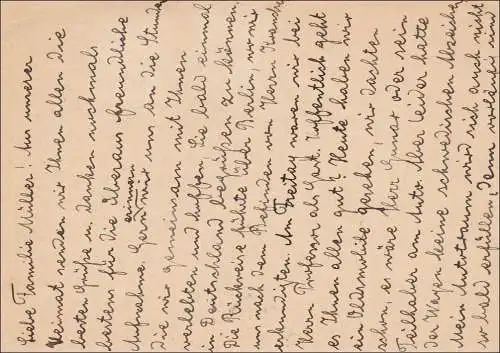 Liebe Familie Müller! Aus unserer
Heimat senden wir Ihnen allen die
besten Grüße u. danken nochmals
bestens für die überaus freundliche
Aufnahme. Gern erinnern wir uns an die Stunden
die wir gemeinsam mit Ihnen
verlebten und hoffen, Sie bald einmal
in Deutschland begrüßen zu können.
Die Rückreise führte über Berlin, wo wir
uns nach dem Befinden von Herrn
erkundigten. Am Freitag waren wir bei
Herrn Professor als Gast. Hoffentlich geht
es Ihnen allen gut? Heute haben wir
ein Oldsmobile gesehen, wir dachten
schon, es wäre Herr Gunar oder sein
Teilhaber am Auto. Aber leider hatte
der Wagen keine schwedischen Abzeichen.
Mein Autotraum wird sich auch nicht
so bald erfüllen. Denn